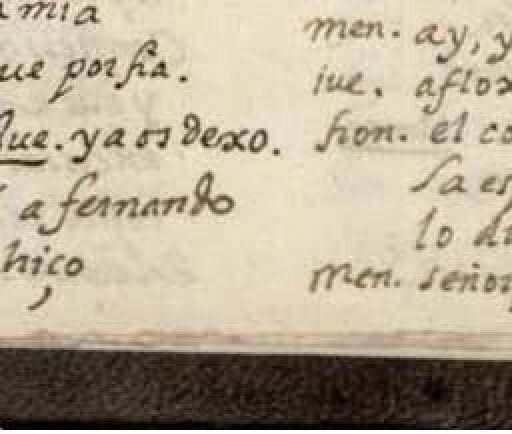 mia
porfia.
ya os dexo.
a fernando
hiço
men. ay, y
iue. aflox
hon. el co
la es
lo di
men. señor